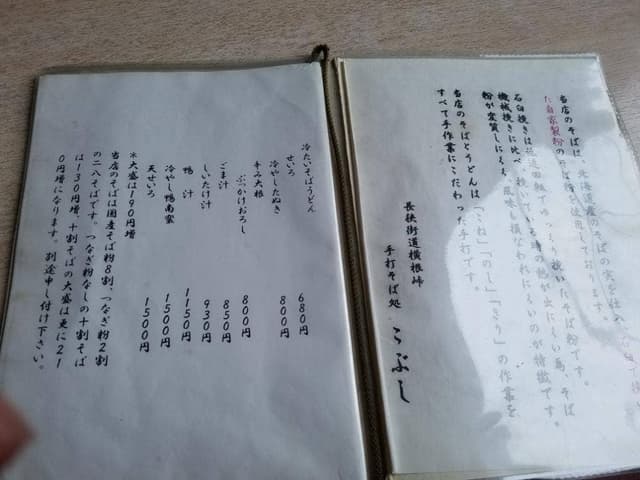 当店のそばは、北海道産のそばの実を仕入れ、石臼で挽い
た自家製粉のそば粉を使用しております。
石臼挽きは低速回転でゆっくり挽いたそば粉です。
機械挽きに比べ、挽いている時の熱が出にくい為、そば
粉が変質しにくく、風味も損なわれにくいのが特徴です。
当店のそばとうどんは、「こね」「のし」「きり」の作業を
すべて手作業にこだわった手打です。
長狭街道横根峠
手打そば処 こぶし
冷たいそばうどん
せいろ 680円
冷やしたぬき 800円
辛み大根
ぶっかけおろし 800円
ごま汁 850円
しいたけ汁 930円
鴨汁 1150円
冷やし鴨南蛮 1500円
天せいろ 1500円
※大盛は190円増
当店のそばは国産そば粉8割、つなぎ粉2割
の二八そばです。つなぎ粉なしの十割そば
は130円増、十割そばの大盛は更に21
0円増になります。別途申し付け下さい。